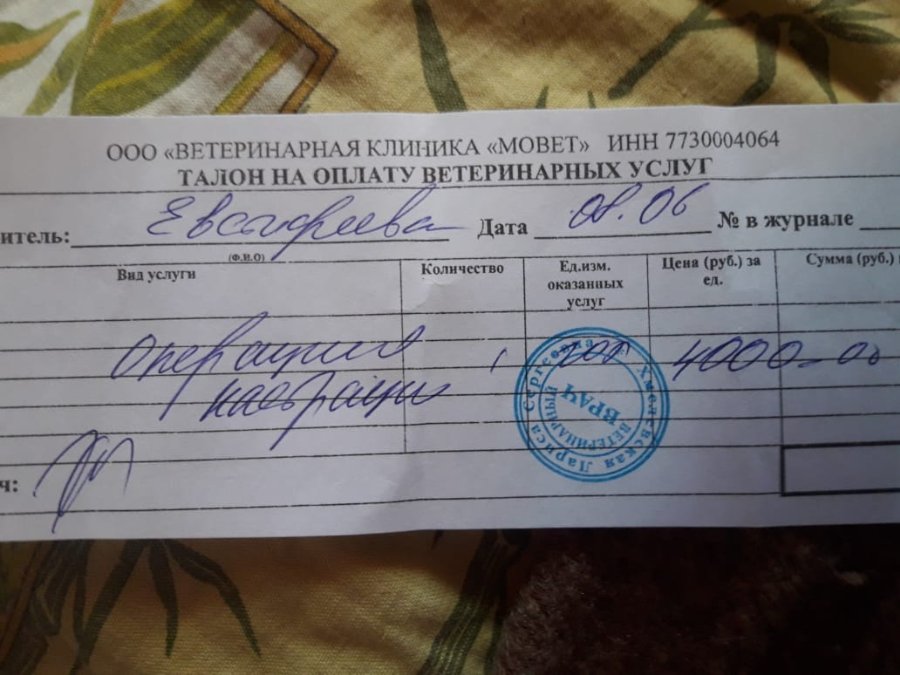 ООО «ВЕТЕРИНАРНАЯ КЛИНИКА «МОВЕТ» ИНН 7730004064
ТАЛОН НА ОПЛАТУ ВЕТЕРИНАРНЫХ УСЛУГ
итель: Евстафеева Дата 08.06 № в журнале
(Ф.И.О)
Вид услуги Количество Ед.изм. оказанных услуг Цена (руб.) за ед. Сумма (руб.)
Операция 1 4000-00
кастрации
ч:
Хмелевская Лариса Сергеевна
ВЕТЕРИНАРНЫЙ
ВРАЧ